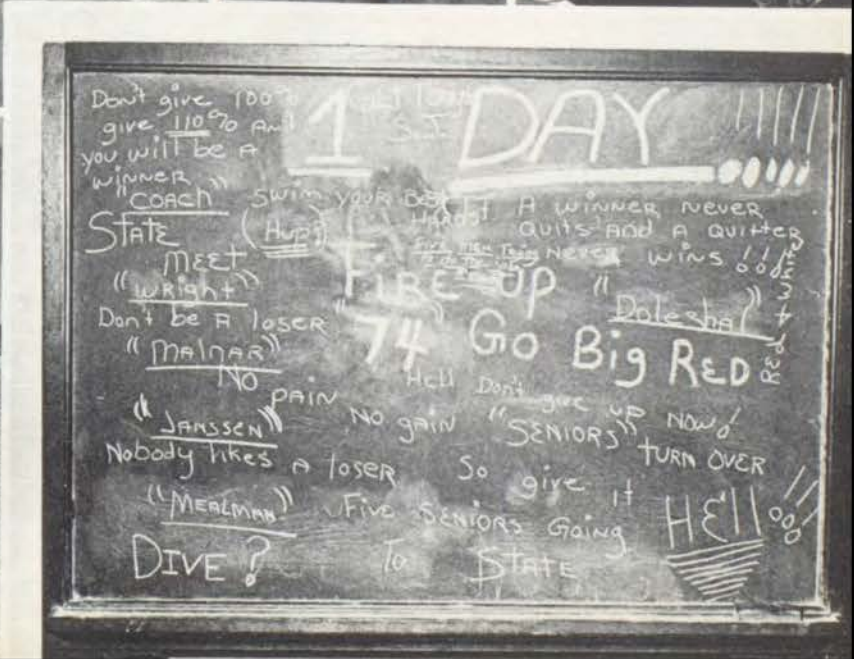 Don't give 100%
give 110% And
you will be A
winner
"COACH"
1 DAY !!!!!
STATE
MEET
Swim your BEST
A winner never
quits and A quitter
Never wins !!!
"WRight"
FIRE UP
"Dolezhal"
Red + White
Don't be A loser
"74" Go Big RED
"MALNAR"
No
PAIN
NO gAiN
Hell Don't give up Now!
"JANSSEN"
"SENIORS"
TURN OVER
Nobody likes A loser
So give it
HEll !!!
"MEALMAN"
Five SENIORS GOING
To STATE
DIVE ?